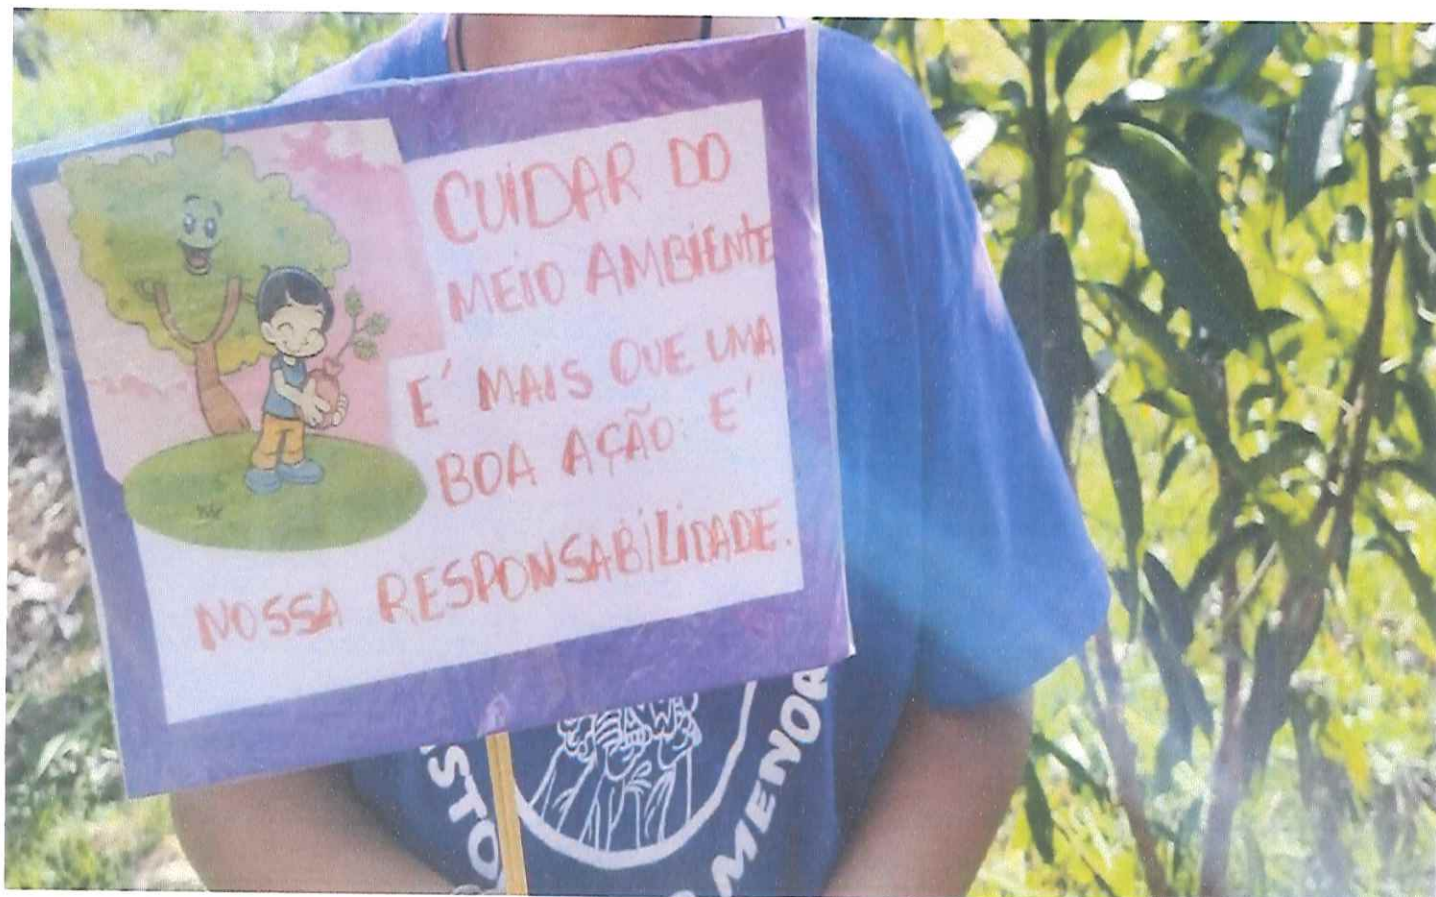 CUIDAR DO
MEIO AMBIENTE
E´ MAIS QUE UMA
BOA AÇÃO: E´
NOSSA RESPONSABILIDADE.
MENOR